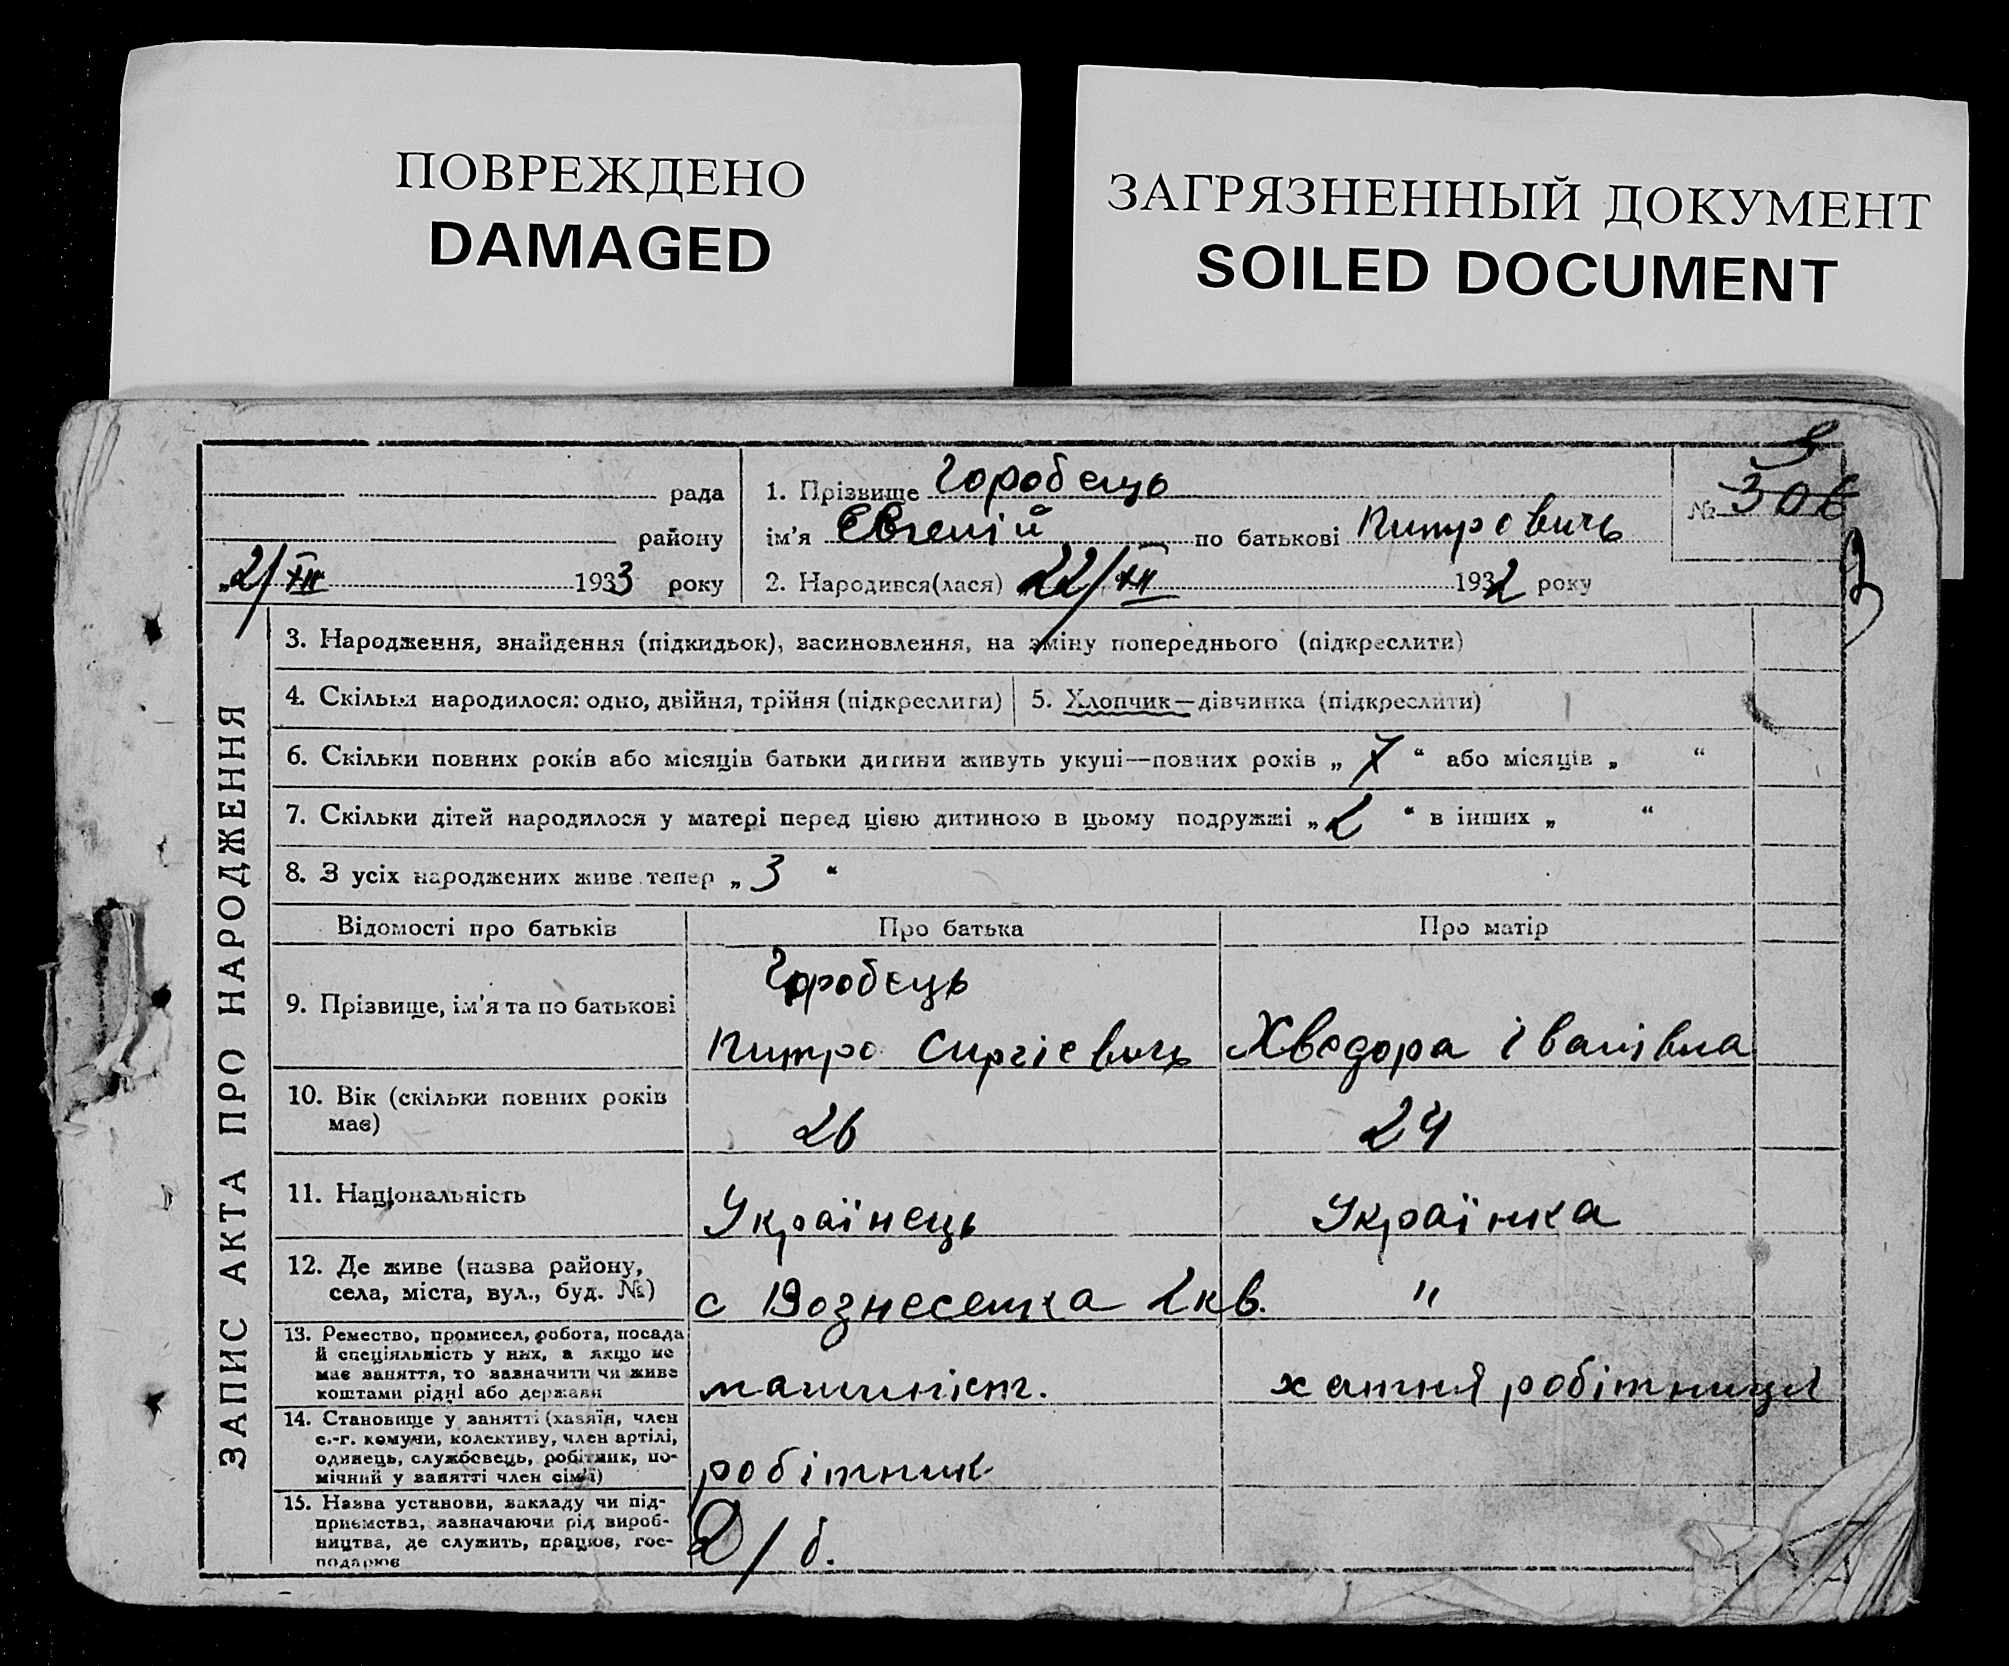 ПОВРЕЖДЕНО
DAMAGED
ЗАГРЯЗНЕННЫЙ ДОКУМЕНТ
SOILED DOCUMENT
рада
району
„2/XII 1933 року
1. Прізвище Горобець
ім'я Евгеній по батькові Питровичь
2. Народився(лася) 22/XII 1932 року
№ 306
ЗАПИС АКТА ПРО НАРОДЖЕННЯ
3. Народження, знайдення (підкидьок), засиновлення, на зміну попереднього (підкреслити)
4. Скільки народилося: одно, двійня, трійня (підкреслити)
5. Хлопчик—дівчинка (підкреслити)
6. Скільки повних років або місяців батьки дитини живуть укупі—повних років „ 7 “ або місяців „ “
7. Скільки дітей народилося у матері перед цією дитиною в цьому подружжі „ 2 “ в інших „ “
8. З усіх народжених живе тепер „ 3 “
Відомості про батьків Про батька Про матір
9. Прізвище, ім'я та по батькові
Горобець
Питро Сиргієвичь
Хведора Іванівна
10. Вік (скільки повних років
має)
26
24
11. Національність
Українець
Українка
12. Де живе (назва району,
села, міста, вул., буд. №)
с Вознесенка 2 кв.
"
13. Ремество, промисел, робота, посада
й спеціяльність у них, а якщо не
має заняття, то зазначити чи живе
коштами рідні або держави
машиніст.
хатня робітниця
14. Становище у занятті (хазяїн, член
с.-г. комуни, колективу, член артілі,
одинець, службовець, робітник, по-
мічний у занятті член сім'ї)
робітник
15. Назва установи, закладу чи під-
приємства, зазначаючи рід вироб-
ництва, де служить, працює, гос-
подарює